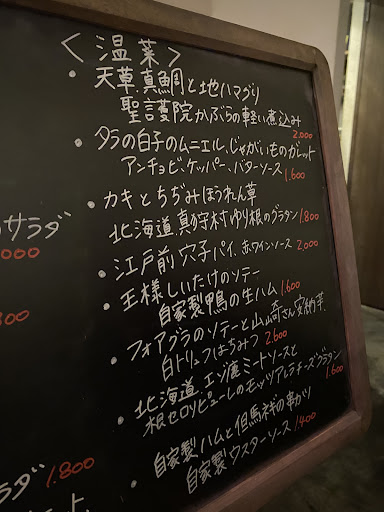 <温菜>
・天草.真鯛と地ハマグリ
聖護院かぶらの軽い煮込み
2.000
・タラの白子のムニエル、じゃがいものガレット
アンチョビ、ケッパー、バターソース
1.600
・カキとちぢみほうれん草
北海道.真狩村ゆり根のグラタン 1.800
・江戸前穴子パイ、赤ワインソース 2.000
・王様しいたけのソテー
自家製鴨の生ハム 1.600
・フォアグラのソテーと山﨑さん安納芋、
白トリュフはちみつ 2.600
・北海道.エゾ鹿ミートソースと
根セロリピューレのモッツァレラチーズグラタン
1.600
・自家製ハムと但馬ネギの串かツ
自家製ウスターソース 1.400
サラダ
000
800
ラダ 1.800